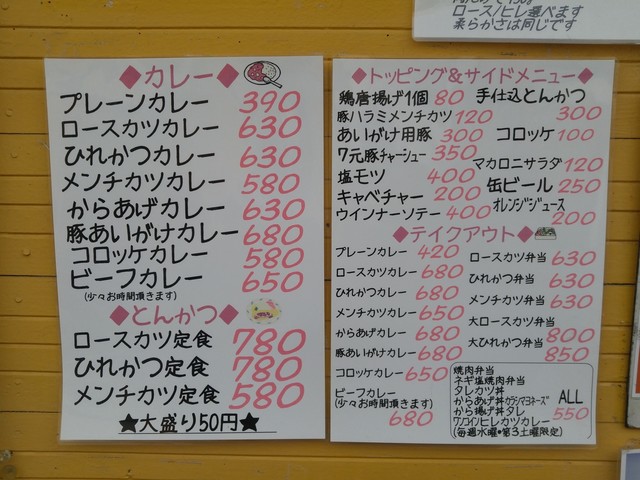 ロース/ヒレ選べます
柔らかさは同じです
◆カレー◆
プレーンカレー 390
ロースカツカレー 630
ひれかつカレー 630
メンチカツカレー 580
からあげカレー 630
豚あいがけカレー 680
コロッケカレー 580
ビーフカレー 650
(少々お時間頂きます)
◆とんかつ◆
ロースカツ定食 780
ひれかつ定食 780
メンチカツ定食 580
★大盛り50円★
◆トッピング&サイドメニュー◆
鶏唐揚げ1個 80
豚ハラミメンチカツ 120
あいがけ用豚 300
7元豚チャーシュー 350
塩モツ 400
キャベチャー 200
ウインナーソテー 400
手仕込とんかつ 300
コロッケ 100
マカロニサラダ 120
缶ビール 250
オレンジジュース 200
◆テイクアウト◆
プレーンカレー 420
ロースカツカレー 680
ひれかつカレー 680
メンチカツカレー 650
からあげカレー 680
豚あいがけカレー 680
コロッケカレー 650
ビーフカレー
(少々お時間頂きます) 680
ロースカツ弁当 630
ひれかつ弁当 630
メンチカツ弁当 630
大ロースカツ弁当 800
大ひれかつ弁当 850
焼肉弁当
ネギ塩焼肉弁当
タレカツ丼
からあげ丼カラシマヨネーズ
から揚げ丼タレ
ワンコインヒレカツカレー
(毎週水曜・第3土曜限定)
ALL 550